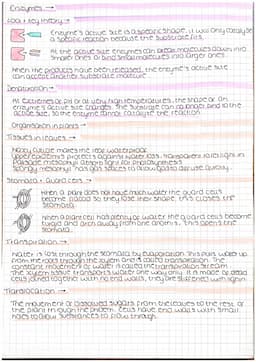 Enzymes →
Lock + key theory →
Enzyme's active site is a specific shape, it will only catalyse
a specific reaction because the substrate fits.
At the active site enzymes can break molecules down into
smaller ones or bind small molecules into larger ones.
When the products have been released, the enzyme's active site
can accept another substrate molecule
Denaturation →
At extremes of pH or at very high temperatures, the shape of an
enzyme's active site changes. The substrate can no longer bind to the
active site, so the enzyme cannot catalyse the reaction.
Organisation in plants →
Tissues in leaves →
Waxy cuticle makes the leaf waterproof
Upper epidermis protects against water loss, transparent to let light in
Palisade mesophyll absorbs light for photosynthesis
Spongy mesophyll has gas spaces to allow gas to diffuse quickly.
Stomata + guard cells →
When a plant does not have much water the guard cells
become flaccid so they lose their shape, this closes the
stomata.
When a plant cell has plenty of water the guard cells become
turgid and arch away from one another. This opens the
stomata.
Transpiration →
Water is lost through the stomata by evaporation. This pulls water up
from the roots through the xylem and is called transpiration. The
constant movement of water is called the transpiration stream.
The xylem tissue transports water one way only. It is made of dead
cells joined together with no end walls, they are stiffened with lignin.
Translocation →
The movement of dissolved sugars from the leaves to the rest of
the plant through the phloem. Cells have end walls with small
holes to allow substances to flow through.